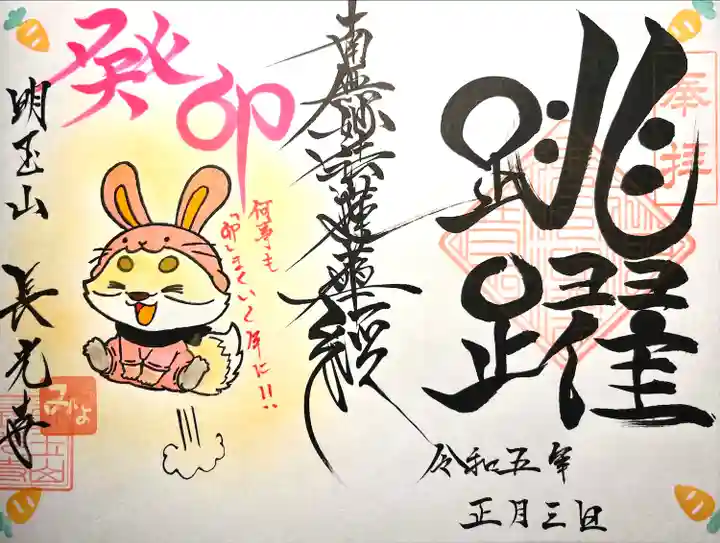 奉拝
跳躍
令和五年
正月三日
南無妙法蓮華経
癸卯
何事も
「卯」まくいく年に!!
明玉山 長光寺